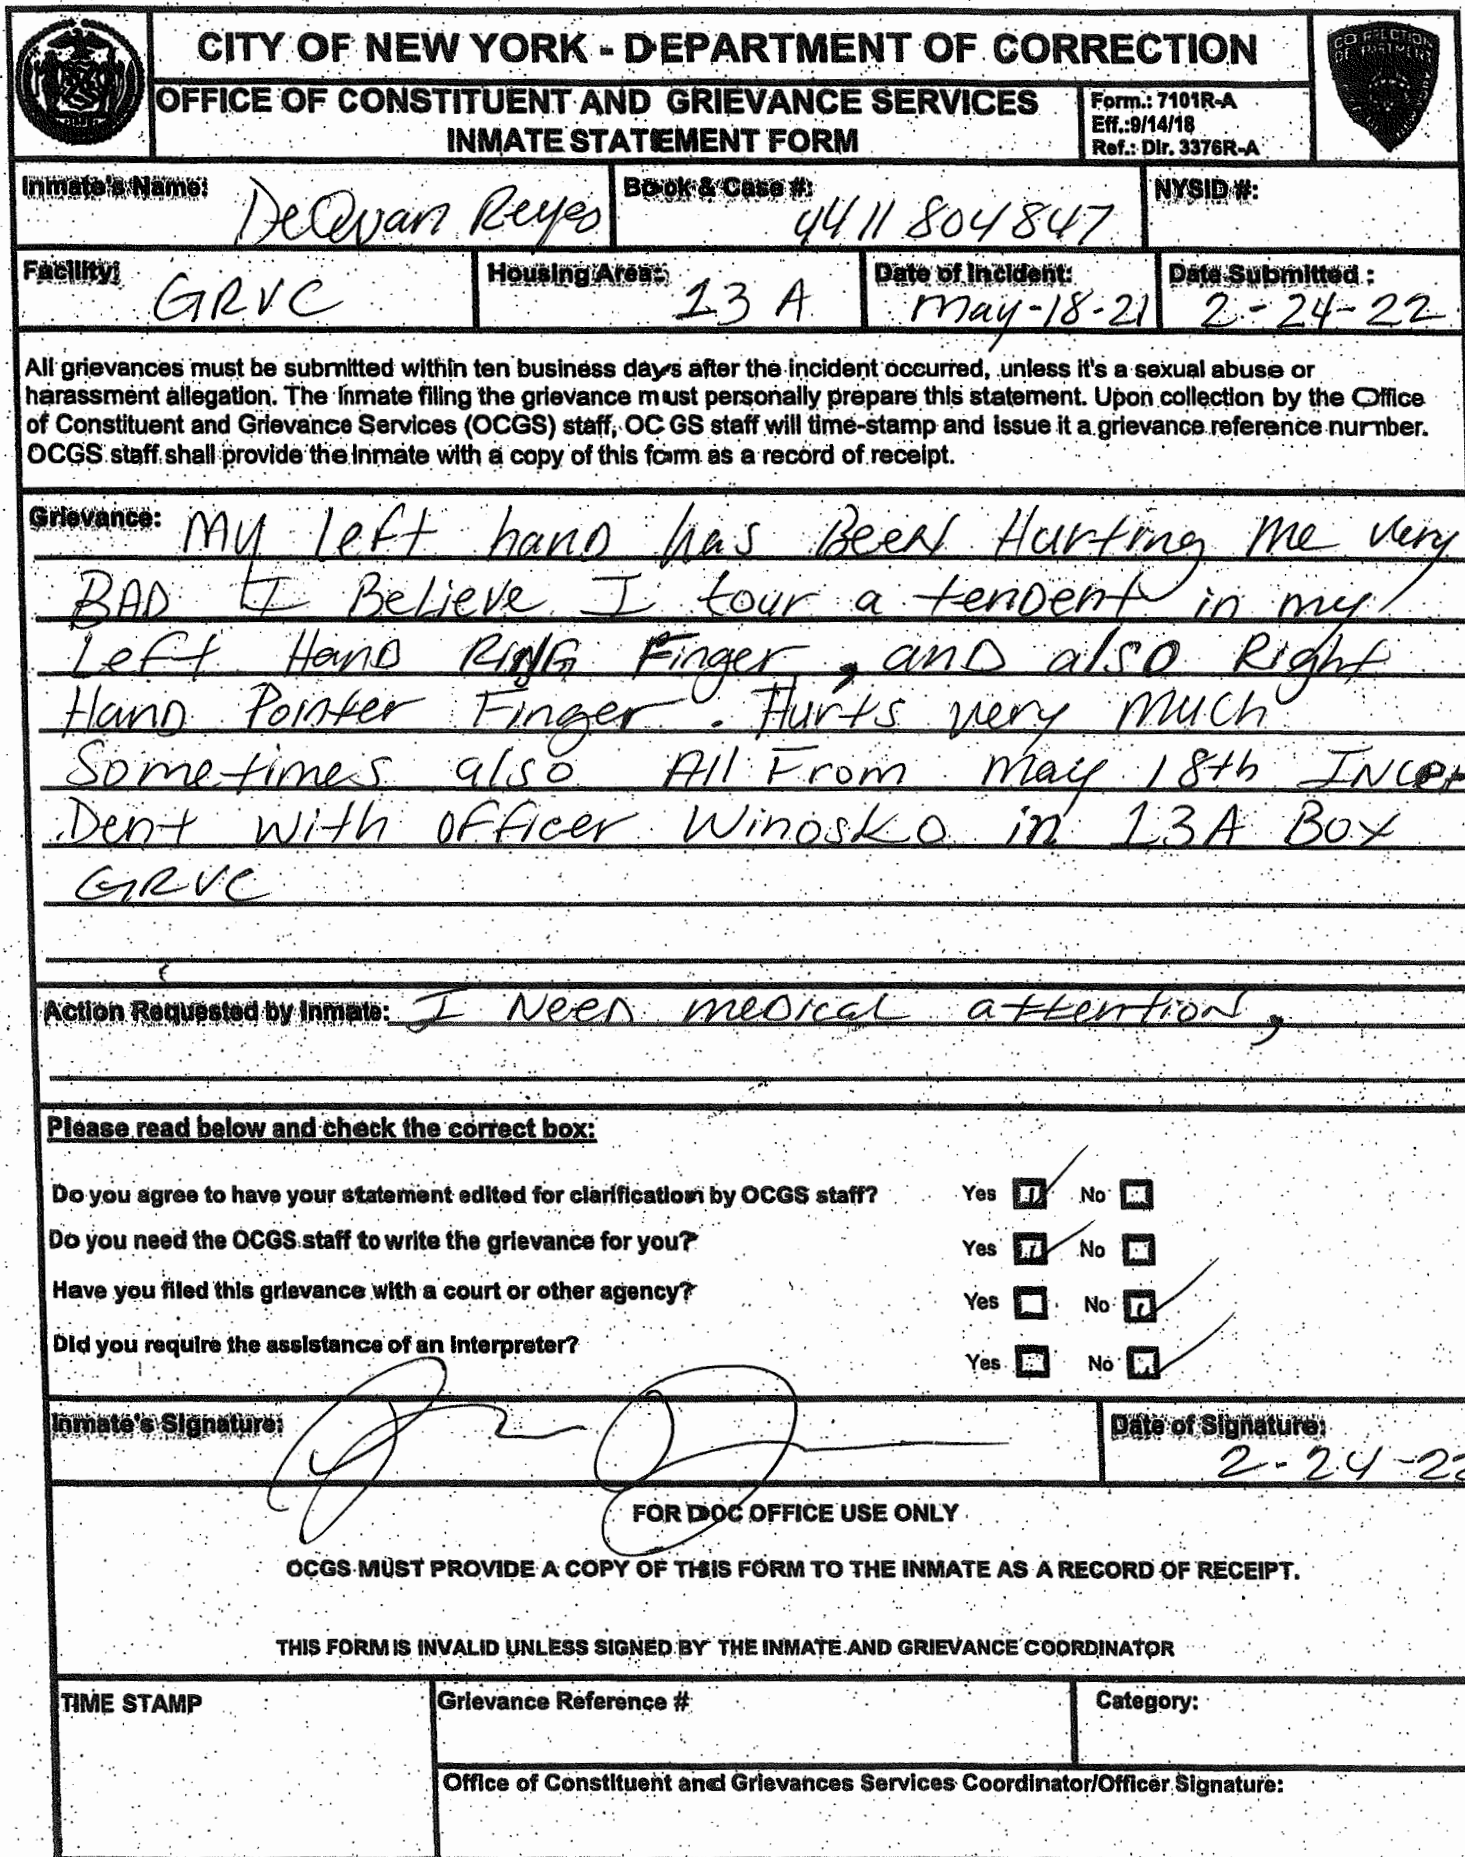 CITY OF NEW YORK - DEPARTMENT OF CORRECTION
OFFICE OF CONSTITUENT AND GRIEVANCE SERVICES
INMATE STATEMENT FORM
Form.: 7101R-A
Eff.:9/14/18
Ref.: Dir. 3376R-A
Inmate's Name: DeQuan Reyes
Book & Case #: 4411804847
NYSID #:
Facility: GRVC
Housing Area: 13 A
Date of Incident: May-18-21
Date Submitted : 2-24-22
All grievances must be submitted within ten business days after the incident occurred, unless it's a sexual abuse or
harassment allegation. The inmate filing the grievance must personally prepare this statement. Upon collection by the Office
of Constituent and Grievance Services (OCGS) staff, OCGS staff will time-stamp and issue it a grievance reference number.
OCGS staff shall provide the inmate with a copy of this form as a record of receipt.
Grievance: My left hand has Been Hurting me very
BAD I Believe I tour a tendent in my
Left Hand RING Finger, and also Right
Hand Pointer Finger. Hurts very much
Sometimes also All From may 18th
Dent with officer Winosko in 13A Box
GRVC
Action Requested by Inmate: I Need medical attention,
Please read below and check the correct box:
Do you agree to have your statement edited for clarification by OCGS staff? Yes No
Do you need the OCGS staff to write the grievance for you? Yes No
Have you filed this grievance with a court or other agency? Yes No
Did you require the assistance of an interpreter? Yes No
Inmate's Signature:
Date of Signature: 2-24-22
FOR DOC OFFICE USE ONLY
OCGS MUST PROVIDE A COPY OF THIS FORM TO THE INMATE AS A RECORD OF RECEIPT.
THIS FORM IS INVALID UNLESS SIGNED BY THE INMATE AND GRIEVANCE COORDINATOR
TIME STAMP
Grievance Reference #
Category:
Office of Constituent and Grievances Services Coordinator/Officer Signature: